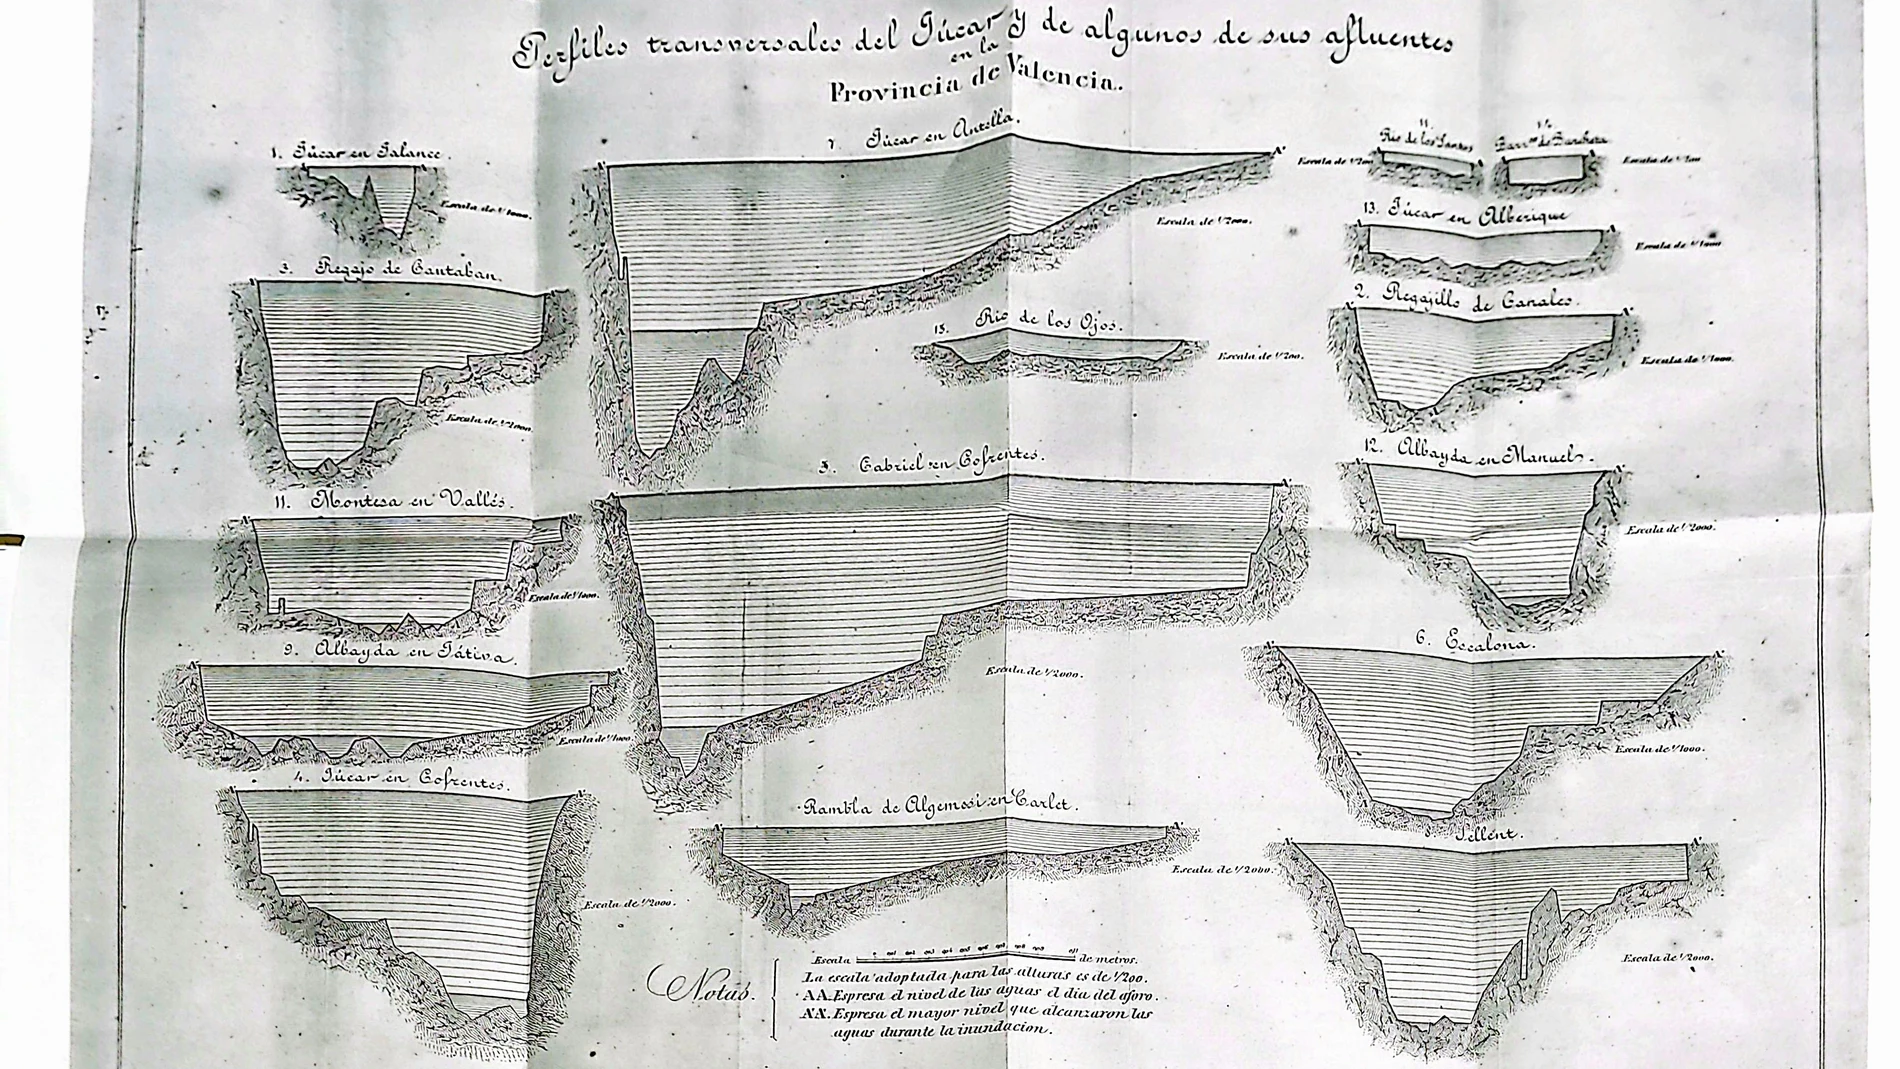 Perfiles transversales del Júcar y de algunos de sus afluentes
en la
Provincia de Valencia.
1. Júcar en Jalance.
Escala de 1/1000.
3. Regajo de Cantaban.
Escala de 1/2000.
11. Montesa en Vallés.
Escala de 1/1000.
9. Albayda en Játiva.
Escala de 1/1000.
4. Júcar en Cofrentes.
Escala de 1/2000.
7. Júcar en Antella.
Escala de 1/2000.
15. Rio de los Ojos.
Escala de 1/200.
5. Cabriel en Cofrentes.
Escala de 1/2000.
Rambla de Algemesí en Carlet.
Escala de 1/2000.
Rio de los Santos
Escala de
Barr.co de Barcheta
Escala de
13. Júcar en Alberique
Escala de 1/1000
2. Regajillo de Canales.
Escala de 1/1000.
12. Albayda en Manuel.
Escala de 1/2000.
6. Escalona.
Escala de 1/1000.
Sellent.
Escala de 1/2000.
Notas.
Escala de metros.
La escala adoptada para las alturas es de 1/200.
AA. Espresa el nivel de las aguas el dia del aforo.
A'A'. Espresa el mayor nivel que alcanzaron las
aguas durante la inundacion.